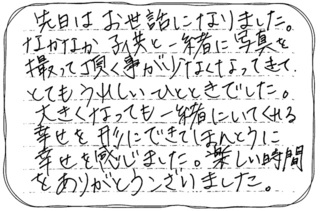 先日はお世話になりました。
なかなか子供と一緒に写真を
撮って頂く事が少なくなってきて、
とてもうれしいひとときでした。
大きくなっても一緒にいてくれる
幸せを形にできてほんとうに
幸せを感じました。楽しい時間
をありがとうございました。